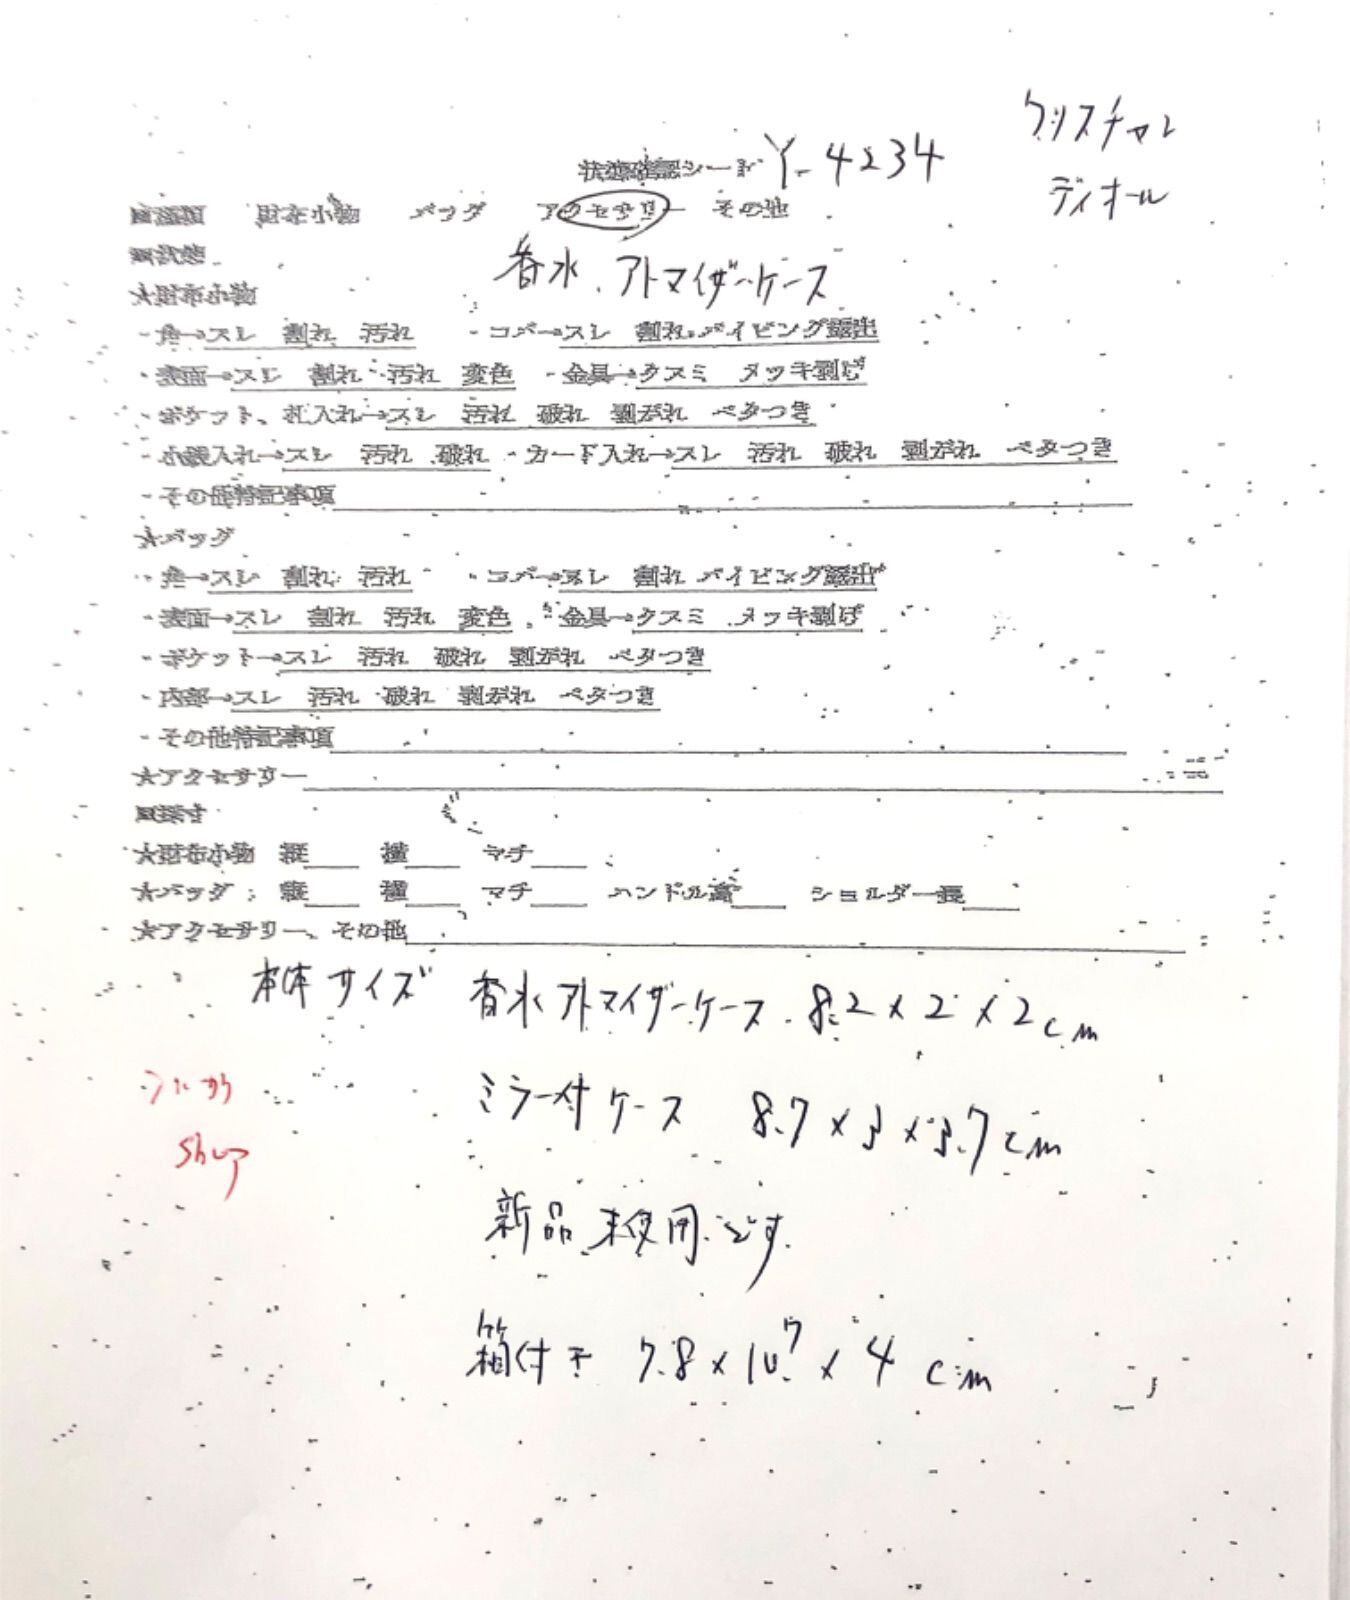 クリスチャン
ディオール
状態確認シート Y-4234
■種類 財布小物 バッグ アクセサリー その他
■状態
香水、アトマイザーケース
★財布小物
・角→スレ 割れ 汚れ ・コバ→スレ 割れ パイピング露出
・表面→スレ 割れ 汚れ 変色 ・金具→クスミ メッキ剥げ
・ポケット、札入れ→スレ 汚れ 破れ 剥がれ ベタつき
・小銭入れ→スレ 汚れ 破れ ・カード入れ→スレ 汚れ 破れ 剥がれ ベタつき
・その他特記事項
★バッグ
・角→スレ 割れ 汚れ ・コバ→スレ 割れ パイピング露出
・表面→スレ 割れ 汚れ 変色 ・金具→クスミ メッキ剥げ
・ポケット→スレ 汚れ 破れ 剥がれ ベタつき
・内部→スレ 汚れ 破れ 剥がれ ベタつき
・その他特記事項
★アクセサリー
■採寸
★財布小物 縦 横 マチ
★バッグ 縦 横 マチ ハンドル高 ショルダー長
★アクセサリー、その他
本体サイズ 香水アトマイザーケース 8.2×2×2cm
ミラー付ケース 8.7×3×3.7cm
新品未使用です
箱付き 7.8×10.7×4cm